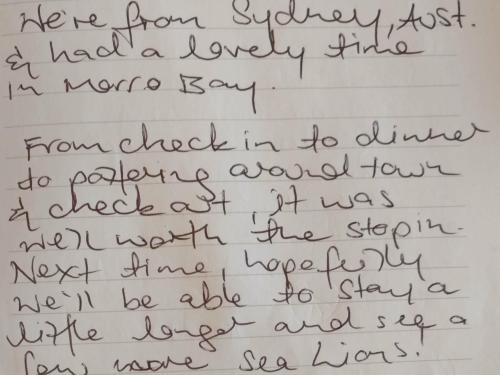 We're from Sydney, Aust.
& had a lovely time
in Morro Bay.
From check in to dinner
to pottering around town
& check out, it was
well worth the stop in.
Next time, hopefully
we'll be able to stay a
little longer and see a
few more sea Lions.